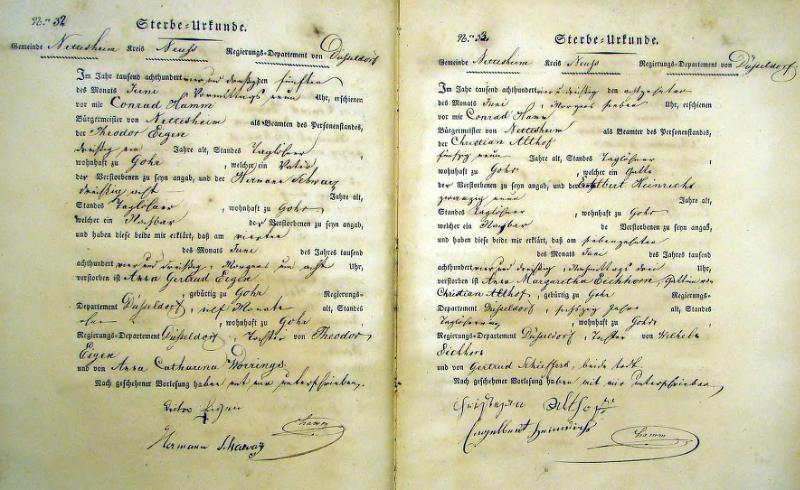 Nro. 52
Sterbe=Urkunde.
Gemeinde Nettesheim Kreis Neuss Regierungs=Departement von Düsseldorf
Im Jahr tausend achthundert vier und dreißig den fünften
des Monats Juni Vormittags neun Uhr, erschienen
vor mir Conrad Hamm
Bürgermeister von Nettesheim als Beamten des Personenstandes,
der Theodor Eigen
dreißig ein Jahre alt, Standes Taglöhner
wohnhaft zu Gohr, welcher ein Vater
der Verstorbenen zu seyn angab, und der Hermann Schwarz
dreißig acht Jahre alt,
Standes Taglöhner, wohnhaft zu Gohr
welcher ein Nachbar der Verstorbenen zu seyn angab,
und haben diese beide mir erklärt, daß am vierten
des Monats Juni des Jahres tausend
achthundert vier und dreißig, Morgens um acht Uhr,
verstorben ist Anna Gertrud Eigen
gebürtig zu Gohr Regierungs=
Departement Düsseldorf, elf Monate alt, Standes
ohne, wohnhaft zu Gohr,
Regierungs=Departement Düsseldorf, Tochter von Theodor
Eigen
und von Anna Catharina Worrings
Nach geschehener Vorlesung haben mit mir unterschrieben.
Eigen
Hamm
Hermann Schwarz
Nro. 53
Sterbe=Urkunde.
Gemeinde Nettesheim Kreis Neuss Regierungs=Departement von Düsseldorf
Im Jahr tausend achthundert vier und dreißig den achtzehnten
des Monats Juni, Morgens sieben Uhr, erschienen
vor mir Conrad Hamm
Bürgermeister von Nettesheim als Beamten des Personenstandes,
der Christian Althof
fünfzig neun Jahre alt, Standes Taglöhner
wohnhaft zu Gohr, welcher ein Gatte
der Verstorbenen zu seyn angab, und der Engelbert Heinrichs
zwanzig neun Jahre alt,
Standes Taglöhner, wohnhaft zu Gohr
welcher ein Nachbar de Verstorbenen zu seyn angab,
und haben diese beide mir erklärt, daß am siebenzehnten
des Monats Juni des Jahres tausend
achthundert vier und dreißig, Nachmittags drei Uhr,
verstorben ist Anna Margaretha Eichhorn, Gattinn von
Christian Althof, gebürtig zu Gohr Regierungs=
Departement Düsseldorf, sechszig Jahre alt, Standes
Taglöhnerinn, wohnhaft zu Gohr,
Regierungs=Departement Düsseldorf, Tochter von Wilhelm
Eichhorn
und von Gertrud Schieffers, beide todt.
Nach geschehener Vorlesung haben mit mir unterschrieben
Christian Althof
Engelbert Heinrichs
Hamm